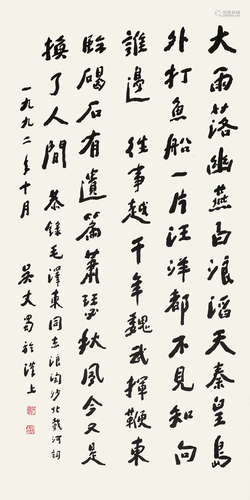 大雨落幽燕白浪滔天秦皇島
外打魚船一片汪洋都不見知向
誰邊 往事越千年魏武揮鞭東
臨碣石有遺篇蕭瑟秋風今又是
換了人間 恭錄毛澤東同志浪淘沙北戴河詞
一九九二年十月 吳丈蜀於漢上